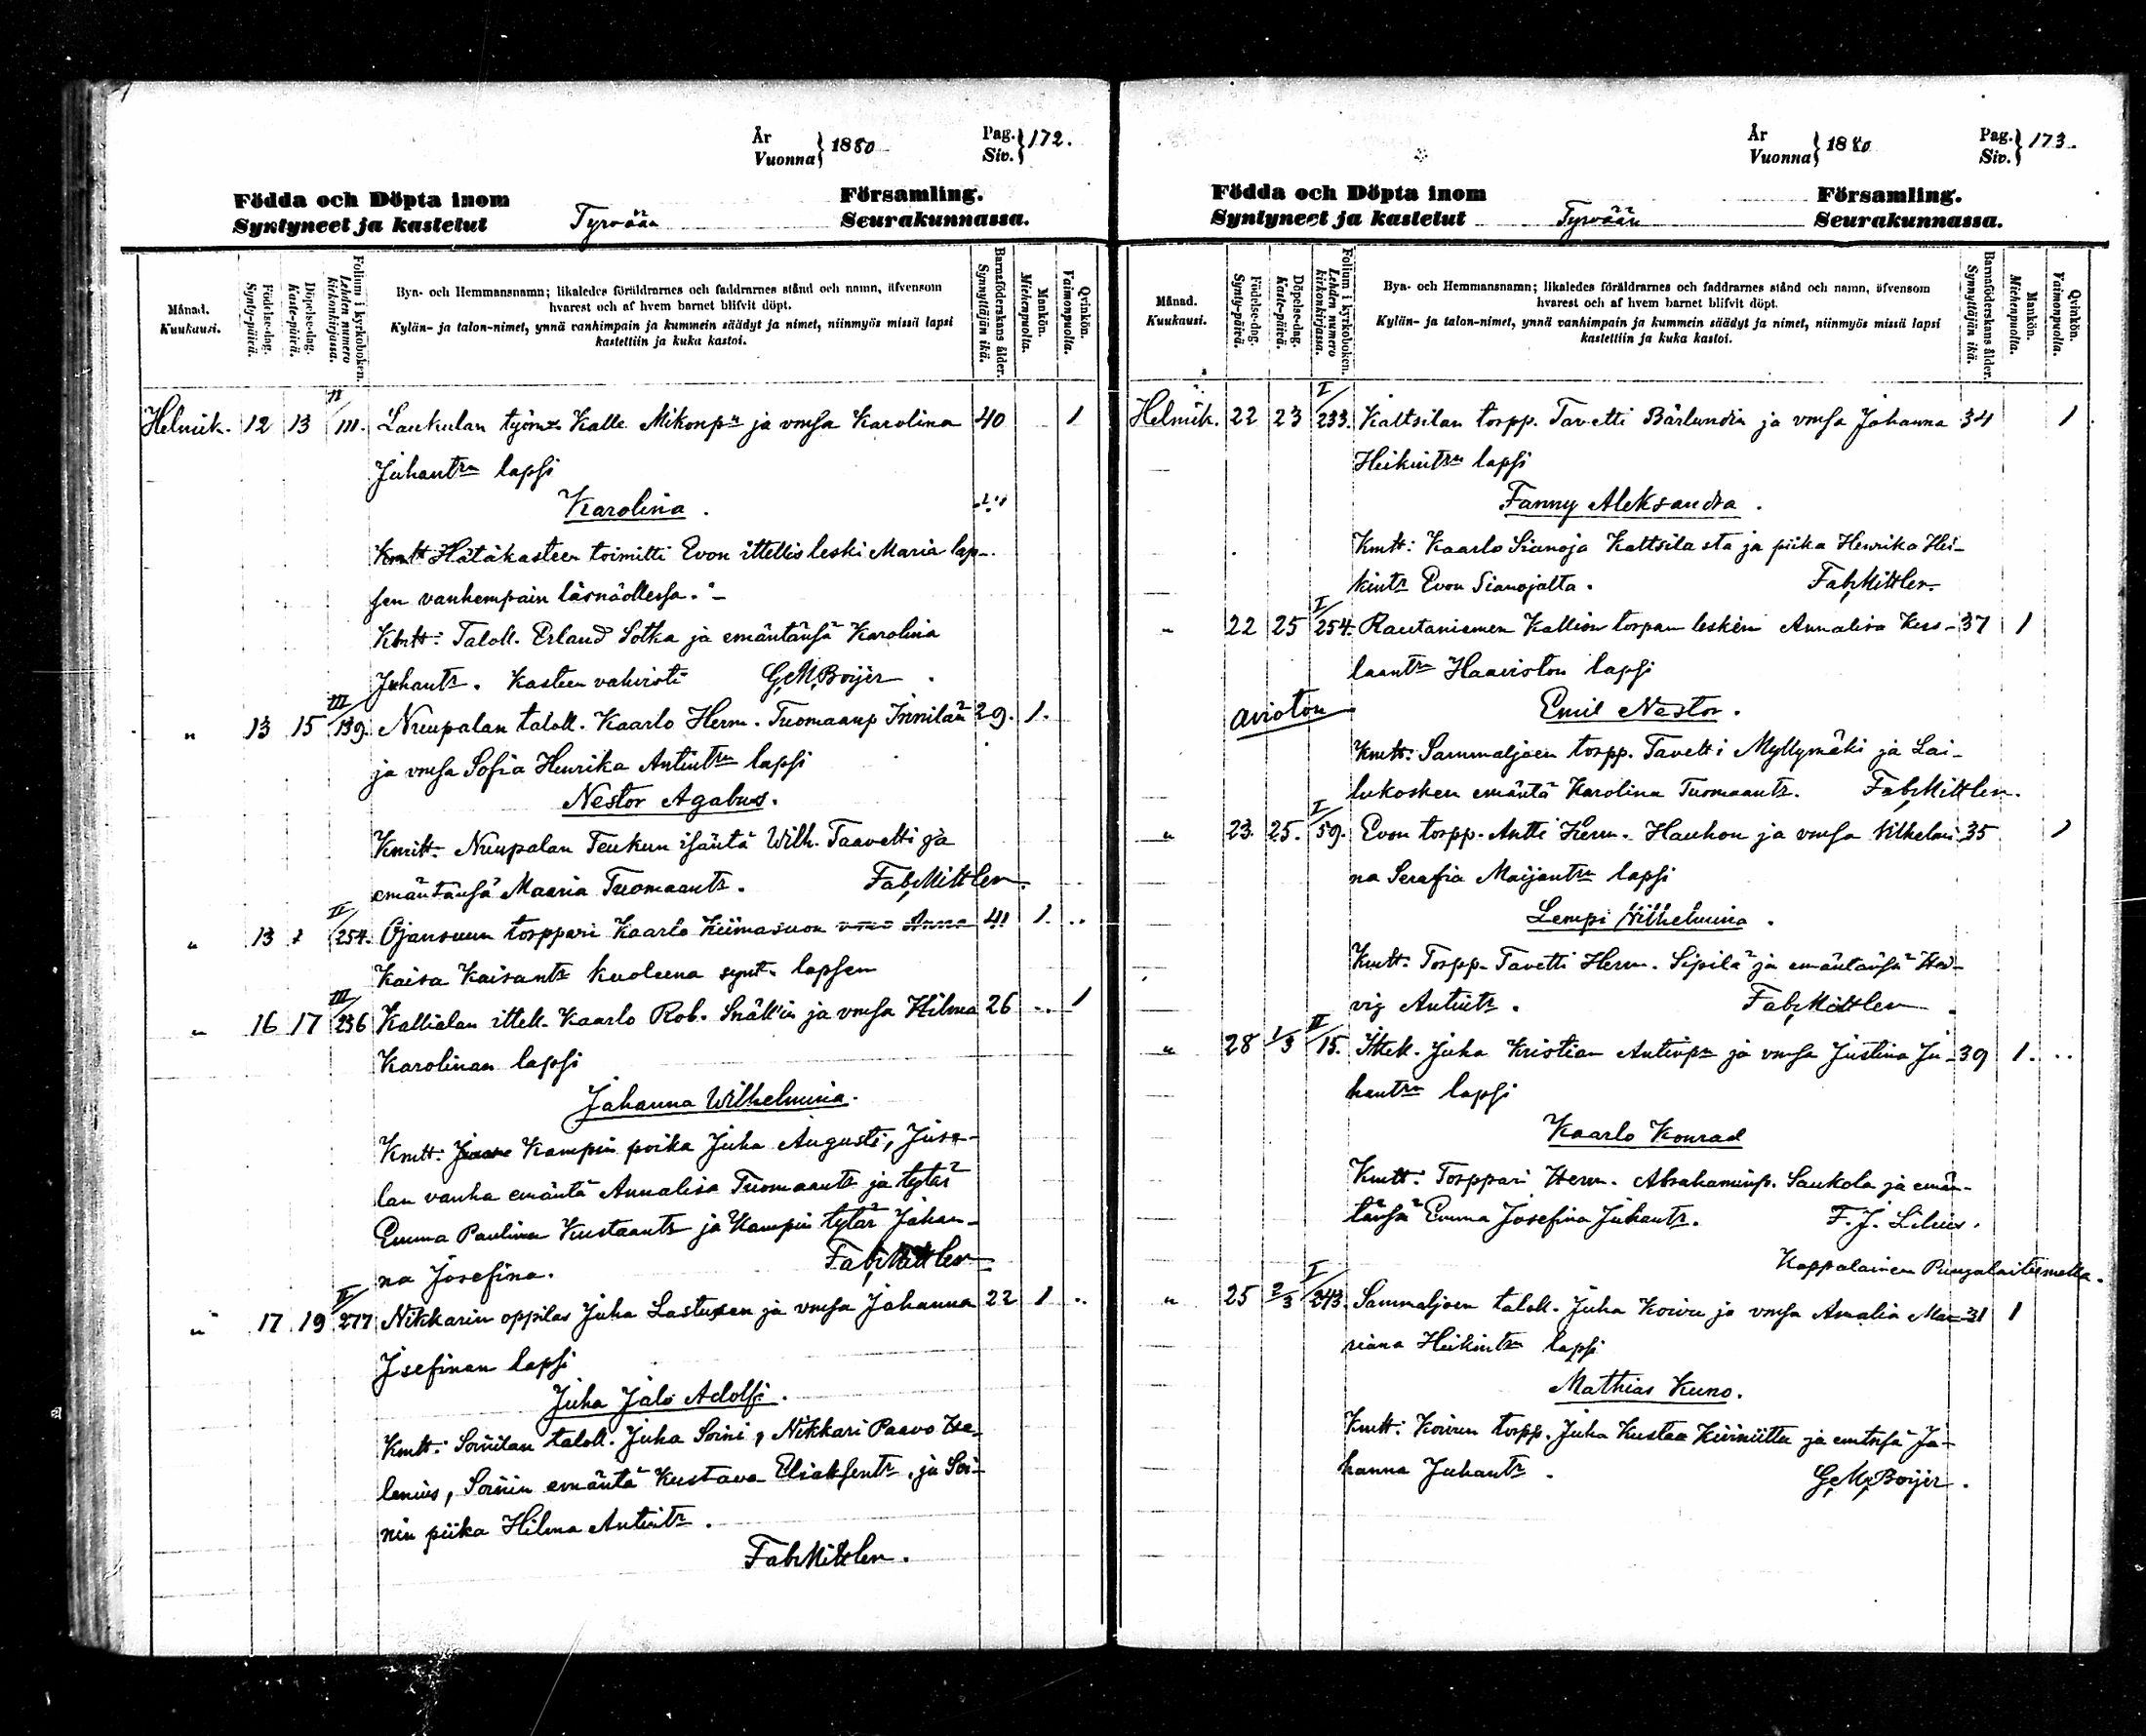 År
Vuonna } 1880
Pag.
Siv. } 172.
Födda och Döpta inom Församling.
Syntyneet ja kastetut Tyrvään Seurakunnassa.
Månad.
Kuukausi.
Födelse-dag.
Synty-päivä.
Döpelse-dag.
Kaste-päivä.
Folium i kyrkoboken.
Lehden numero kirkonkirjassa.
Bya- och Hemmansnamn; likaledes föräldrarnes och faddrarnes stånd och namn, äfvensom
hvarest och af hvem barnet blifvit döpt.
Kylän- ja talon-nimet, ynnä vanhimpain ja kummein säädyt ja nimet, niinmyös missä lapsi
kastettiin ja kuka kastoi.
Barnaföderskans ålder.
Synnyttäjän ikä.
Mankön.
Miehenpuolta.
Qvinkön.
Vaimonpuolta.
Helmik. 12 13 II/111. Laukulan työm. Kalle Mikonp:n ja vmsa Karolina 40 1
Juhantr:n lapsi
Karolina.
Hätäkasteen toimitti Evon ittellis leski Maria lap-
sen vanhempain läsnäollessa.
Kmtt: Taloll. Erland Sotka ja emäntänsä Karolina
Juhantr. Kasteen vahvisti G.M.Boijer.
" 13 15 III/139. Nuupalan taloll. Kaarlo Herm. Tuomaanp Innilän 29. 1.
ja vmsa Sofia Henrika Antintr:n lapsi
Nestor Agabus.
Kmtt. Nuupalan Teukun isäntä Wilh. Taavetti ja
emäntänsä Maaria Tuomaantr. Fab.Mittler.
" 13 † II/254. Ojansuun torppari Kaarlo Kiimasuon vmo Anna 41 1.
Kaisa Kaisantr kuolleena synt. lapsen
" 16 17 III/236 Kallialan ittell. Kaarlo Rob. Snäll'in ja vmsa Hilma 26 1
Karolinan lapsi
Johanna Wilhelmina.
Kmtt: Kampin poika Juha Augusti, Juse-
lan vanha emäntä Annalisa Tuomaantr ja tytär
Emma Paulina Kustaantr ja Kampin tytär Johan-
na Josefina. Fab.Mittler
" 17 19 II/277 Nikkarin oppilas Juha Lastusen ja vmsa Johanna 22 1
Josefinan lapsi
Juha Jalo Adolfi.
Kmtt: Soinilan taloll. Juha Soini, Nikkari Paavo He-
lenius, Soinin emäntä Kustava Eliaksentr, ja Soi-
nin piika Hilma Antintr.
Fab.Mittler.
År
Vuonna } 1880
Pag.
Siv. } 173.
Födda och Döpta inom Församling.
Syntyneet ja kastetut Tyrvään Seurakunnassa.
Månad.
Kuukausi.
Födelse-dag.
Synty-päivä.
Döpelse-dag.
Kaste-päivä.
Folium i kyrkoboken.
Lehden numero kirkonkirjassa.
Bya- och Hemmansnamn; likaledes föräldrarnes och faddrarnes stånd och namn, äfvensom
hvarest och af hvem barnet blifvit döpt.
Kylän- ja talon-nimet, ynnä vanhimpain ja kummein säädyt ja nimet, niinmyös missä lapsi
kastettiin ja kuka kastoi.
Barnaföderskans ålder.
Synnyttäjän ikä.
Mankön.
Miehenpuolta.
Qvinkön.
Vaimonpuolta.
Helmik. 22 23 I/233. Kaltsilan torpp. Tavetti Bärlundin ja vmsa Johanna 34 1
Heikintr:n lapsi
Fanny Aleksandra.
Kmtt: Kaarlo Sianoja Kaltsilasta ja piika Henrika Hei-
kintr Evon Sianojalta. Fab.Mittler.
" 22 25 I/254. Rautaniemen Kallion torpan lesken Annalisa Kus- 37 1
taantr Haaviston lapsi
avioton Emil Nestor.
Kmtt: Sammaljoen torpp. Tavetti Myllymäki ja Lai-
lukosken emäntä Karolina Tuomaantr. Fab.Mittler.
" 23. 25. I/59. Evon torpp. Antti Herm. Hauhon ja vmsa Vilhelmi- 35 1
na Serafia Maijantr:n lapsi
Lempi Wilhelmina.
Kmtt: Torpp. Tavetti Herm. Sipilä ja emäntänsä Hed-
vig Antintr. Fab.Mittler.
" 28 1/3 II/15. Ittell. Juha Kristian Antinp:n ja vmsa Justina Ju- 39 1.
hantr:n lapsi
Kaarlo Konrad
Kmtt: Torppari Herm. Abrahaminp. Saukola ja emän-
tänsä Emma Josefina Juhantr. F. J. Lilius.
Kappalainen Pungalaitumella.
" 25 2/3 I/243. Sammaljoen taloll. Juha Koivu ja vmsa Amalia Maa- 31 1
riana Heikintr:n lapsi
Mathias Kuno.
Kmtt: Koivun torpp. Juha Kustaa Kiviniittu ja emtnsä Jo-
hanna Juhantr. G.M.Boijer.